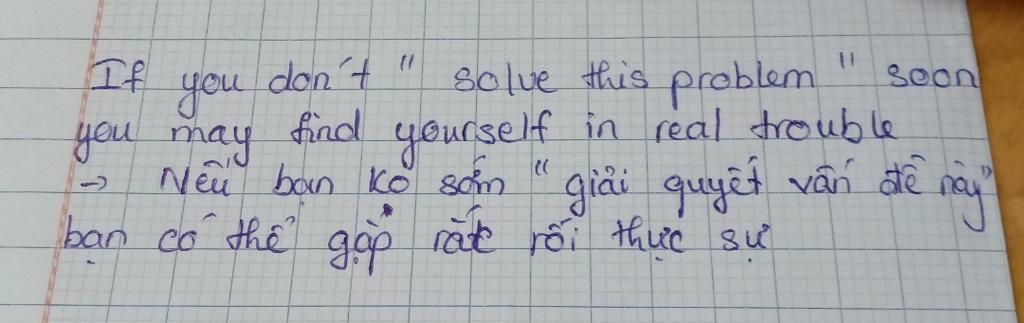 If you don't " solve this problem " soon
you may find yourself in real trouble
→ Nếu bạn ko sớm " giải quyết vấn đề này"
bạn có thể gặp rất rối thực sự